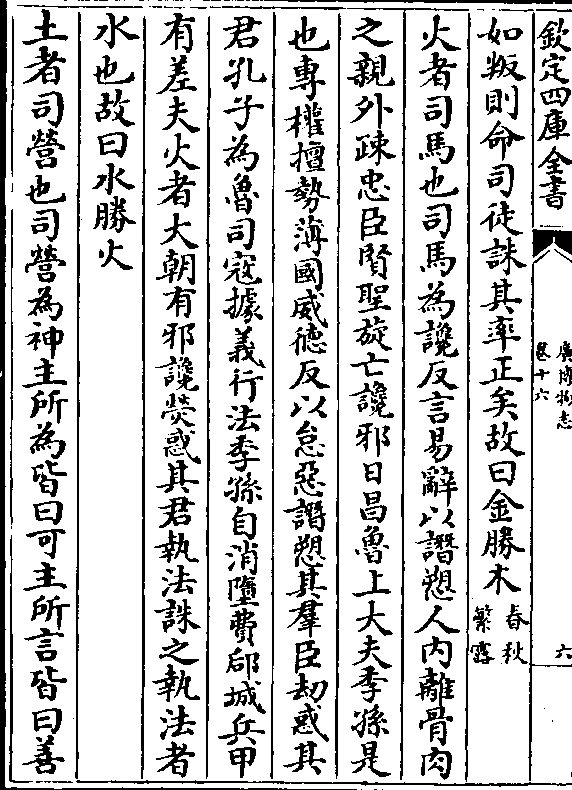 欽定四庫全書
廣博物志
卷十六
六
如叛則命司徒誅其率正矣故曰金勝木春秋繁露
火者司馬也司馬為讒反言易辭以譖愬人内離骨肉
之親外疎忠臣賢聖旋亡讒邪日昌魯上大夫季孫是
也專權擅勢薄國威德反以怠惡譖愬其羣臣劫惑其
君孔子為魯司寇據義行法季孫自消墮費郈城兵甲
有差夫火者大朝有邪讒熒惑其君執法誅之執法者
水也故曰水勝火
土者司營也司營為神主所為皆曰可主所言皆曰善